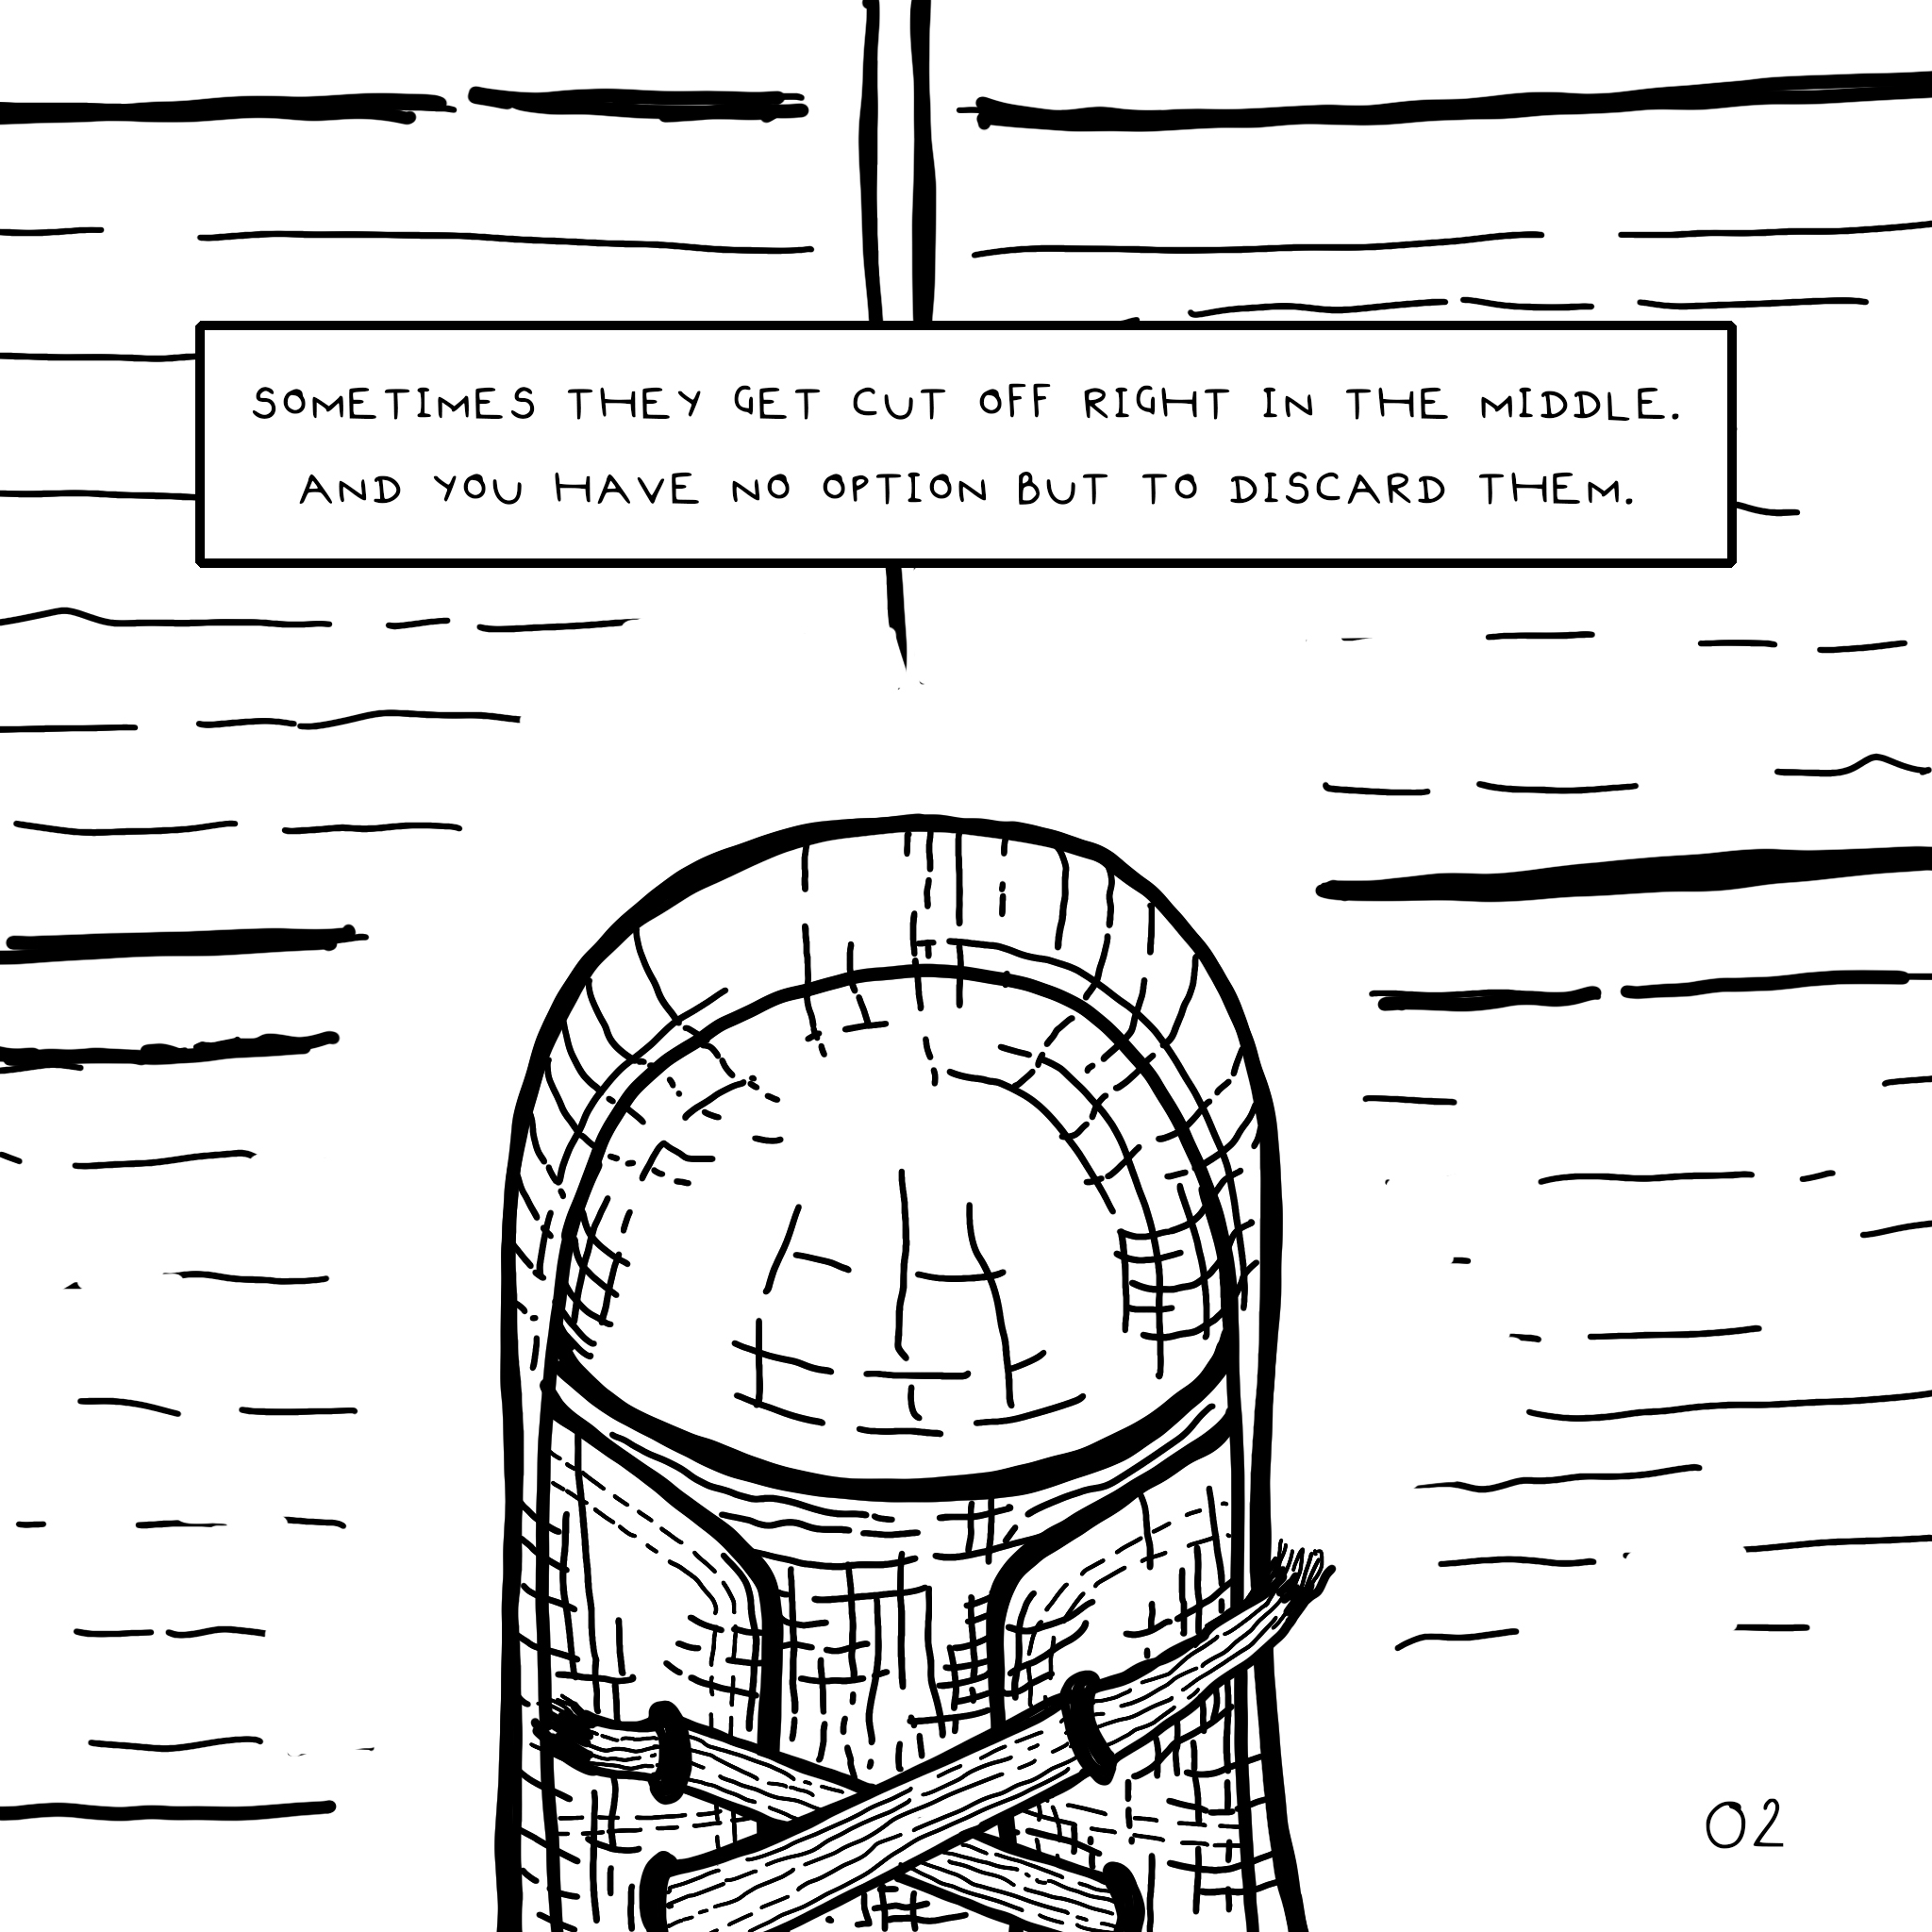 SOMETIMES THEY GET CUT OFF RIGHT IN THE MIDDLE.
AND YOU HAVE NO OPTION BUT TO DISCARD THEM.
02